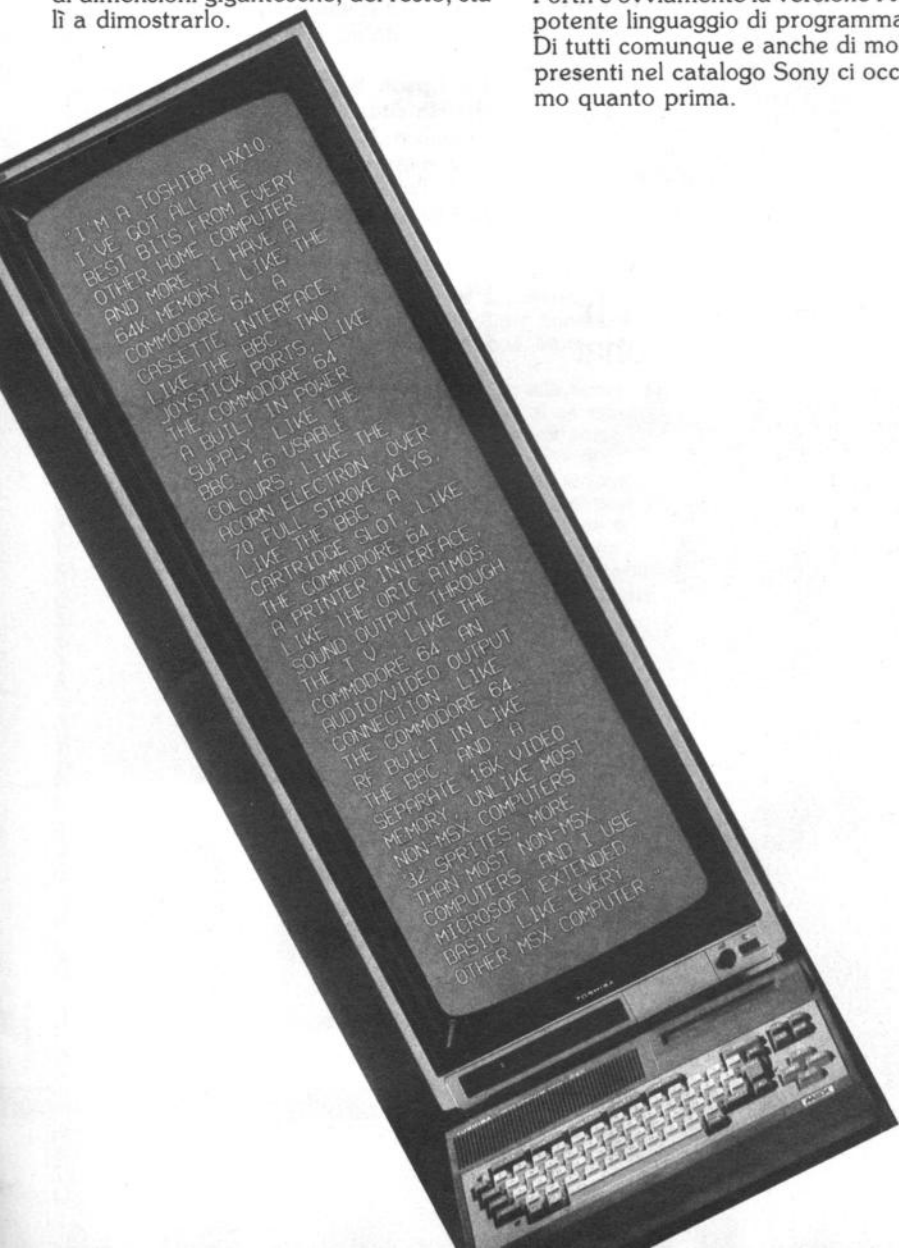 di dimensioni gigantesche, del resto, sta
lì a dimostrarlo.
potente linguaggio di programma
Di tutti comunque e anche di mo
presenti nel catalogo Sony ci occ
mo quanto prima.
"I'M A TOSHIBA HX10.
I'VE GOT ALL THE
BEST BITS FROM EVERY
OTHER HOME COMPUTER
AND MORE. I HAVE A
64K MEMORY, LIKE THE
COMMODORE 64. A
CASSETTE INTERFACE,
LIKE THE BBC. TWO
JOYSTICK PORTS, LIKE
THE COMMODORE 64.
A BUILT IN POWER
SUPPLY, LIKE THE
BBC. 16 USABLE
COLOURS, LIKE THE
ACORN ELECTRON. OVER
70 FULL STROKE KEYS,
LIKE THE BBC. A
CARTRIDGE SLOT, LIKE
THE COMMODORE 64.
A PRINTER INTERFACE,
LIKE THE ORIC ATMOS.
SOUND OUTPUT THROUGH
THE T.V., LIKE THE
COMMODORE 64. AN
AUDIO/VIDEO OUTPUT
CONNECTION, LIKE
THE COMMODORE 64.
RF BUILT IN LIKE
THE BBC. AND, A
SEPARATE 16K VIDEO
MEMORY, UNLIKE MOST
NON-MSX COMPUTERS.
32 SPRITES, MORE
THAN MOST NON-MSX
COMPUTERS. AND I USE
MICROSOFT EXTENDED
BASIC, LIKE EVERY
OTHER MSX COMPUTER.
TOSHIBA
MSX